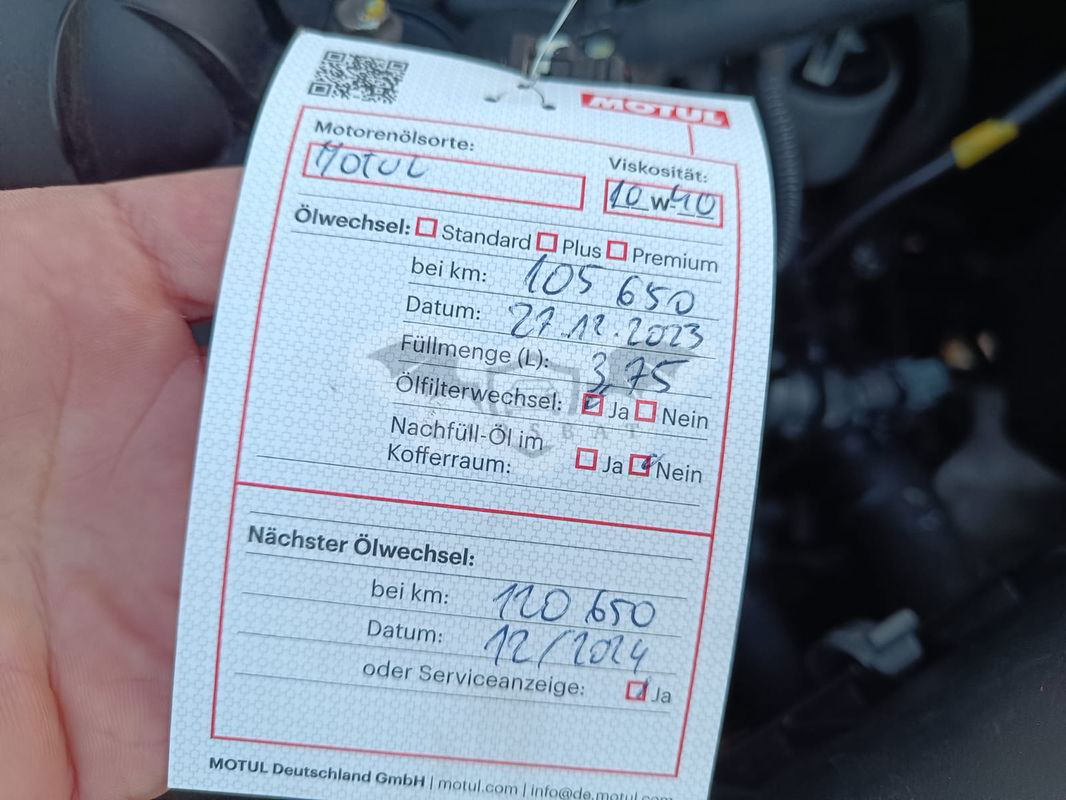 MOTUL
Motorenölsorte: MOTUL
Viskosität: 10 W 40
Ölwechsel: Standard Plus Premium
bei km: 105 650
Datum: 27.12.2023
Füllmenge (L): 3,75
Ölfilterwechsel: Ja Nein
Nachfüll-Öl im
Kofferraum: Ja Nein
Nächster Ölwechsel:
bei km: 120 650
Datum: 12/2024
oder Serviceanzeige: Ja
MOTUL Deutschland GmbH | motul.com | info@de.motul.com